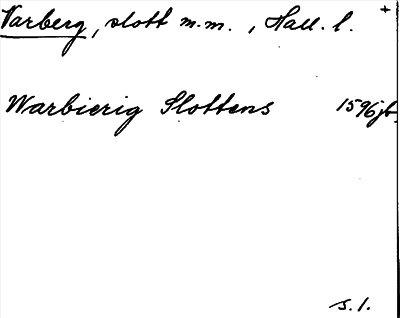 Varberg, slott m.m., Hall. l. +
Warbierig Slottens 1596 jb.
s. 1.